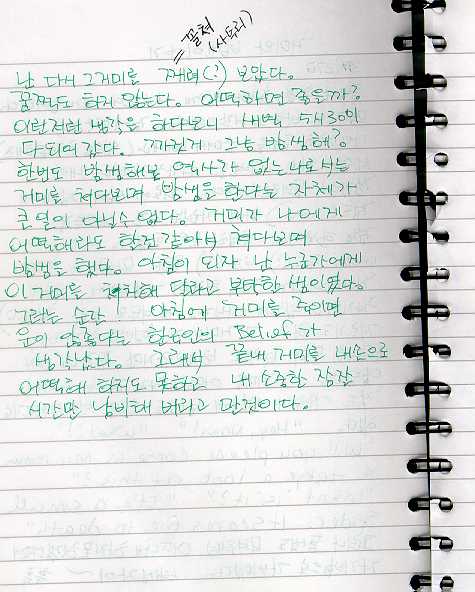 = 꼴쳐
(사투리)
난 다시 그거미를 째려(?) 보았다.
꿈쩍도 하지 않는다. 어떡하면 좋을까?
이런저런 생각을 하다보니 새벽 5시 30이
다되어 갔다. 까짓거 그냥 밤샘해?
한번도 밤샘해본 역사가 없는 나로서는
거미를 쳐다보며 밤샘을 한다는 자체가
큰 일이 아닐수 없다. 거미가 나에게
어떡해라도 할것 같아서 쳐다보며
밤샘을 했다. 아침이 되자 난 누군가에게
이 거미를 처치해 달라고 부탁할 셈이었다.
그러는 순간 아침에 거미를 죽이면
운이 안좋다는 한국인의 Belief가
생각났다. 그래서 끝내 거미를 내손으로
어떡해 하지도 못하고 내 소중한 잠잘
시간만 낭비해 버리고 만것이다.